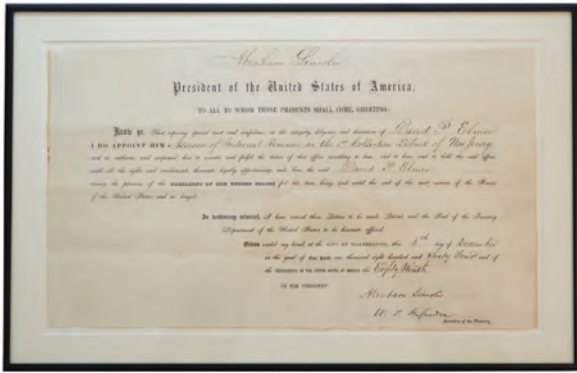 Abraham Lincoln
President of the United States of America,
TO ALL TO WHOM THESE PRESENTS SHALL COME, GREETING:
Know ye, That reposing special trust and confidence in the integrity, diligence, and discretion of David P. Elmer
I DO APPOINT HIM Assessor of Internal Revenue in the 1st Collection District of New Jersey
and do authorize and empower him to execute and fulfil the duties of that office according to law; and to have and to hold the said office
with all the rights and emoluments thereunto legally appertaining, unto him, the said David P. Elmer
during the pleasure of the PRESIDENT OF THE UNITED STATES for the time being, and until the end of the next session of the Senate
of the United States and no longer.
In testimony whereof, I have caused these Letters to be made Patent, and the Seal of the Treasury
Department of the United States to be hereunto affixed.
Given under my hand, at the CITY OF WASHINGTON, this 5th day of December
in the year of OUR LORD one thousand eight hundred and Sixty Four and of
the INDEPENDENCE OF THE UNITED STATES OF AMERICA the Eighty Ninth.
BY THE PRESIDENT:
Abraham Lincoln
W. P. Fessenden
Secretary of the Treasury.